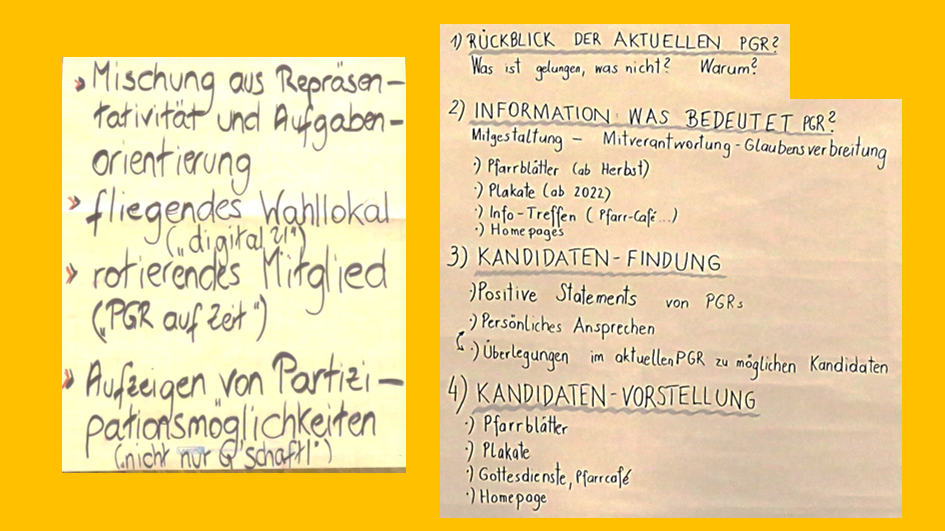 » Mischung aus Repräsen-
tativität und Aufgaben-
orientierung
» fliegendes Wahllokal
("digital?!")
» rotierendes Mitglied
("PGR auf Zeit")
» Aufzeigen von Partizi-
pationsmöglichkeiten
("nicht nur G'schaftl")
1) RÜCKBLICK DER AKTUELLEN PGR?
Was ist gelungen, was nicht? Warum?
2) INFORMATION: WAS BEDEUTET PGR?
Mitgestaltung - Mitverantwortung - Glaubensverbreitung
·) Pfarrblätter (ab Herbst)
·) Plakate (ab 2022)
·) Info-Treffen (Pfarr-Café...)
·) Homepages
3) KANDIDATEN-FINDUNG
·) Positive Statements von PGRs
·) Persönliches Ansprechen
·) Überlegungen im aktuellen PGR zu möglichen Kandidaten
4) KANDIDATEN-VORSTELLUNG
·) Pfarrblätter
·) Plakate
·) Gottesdienste, Pfarrcafé
·) Homepage